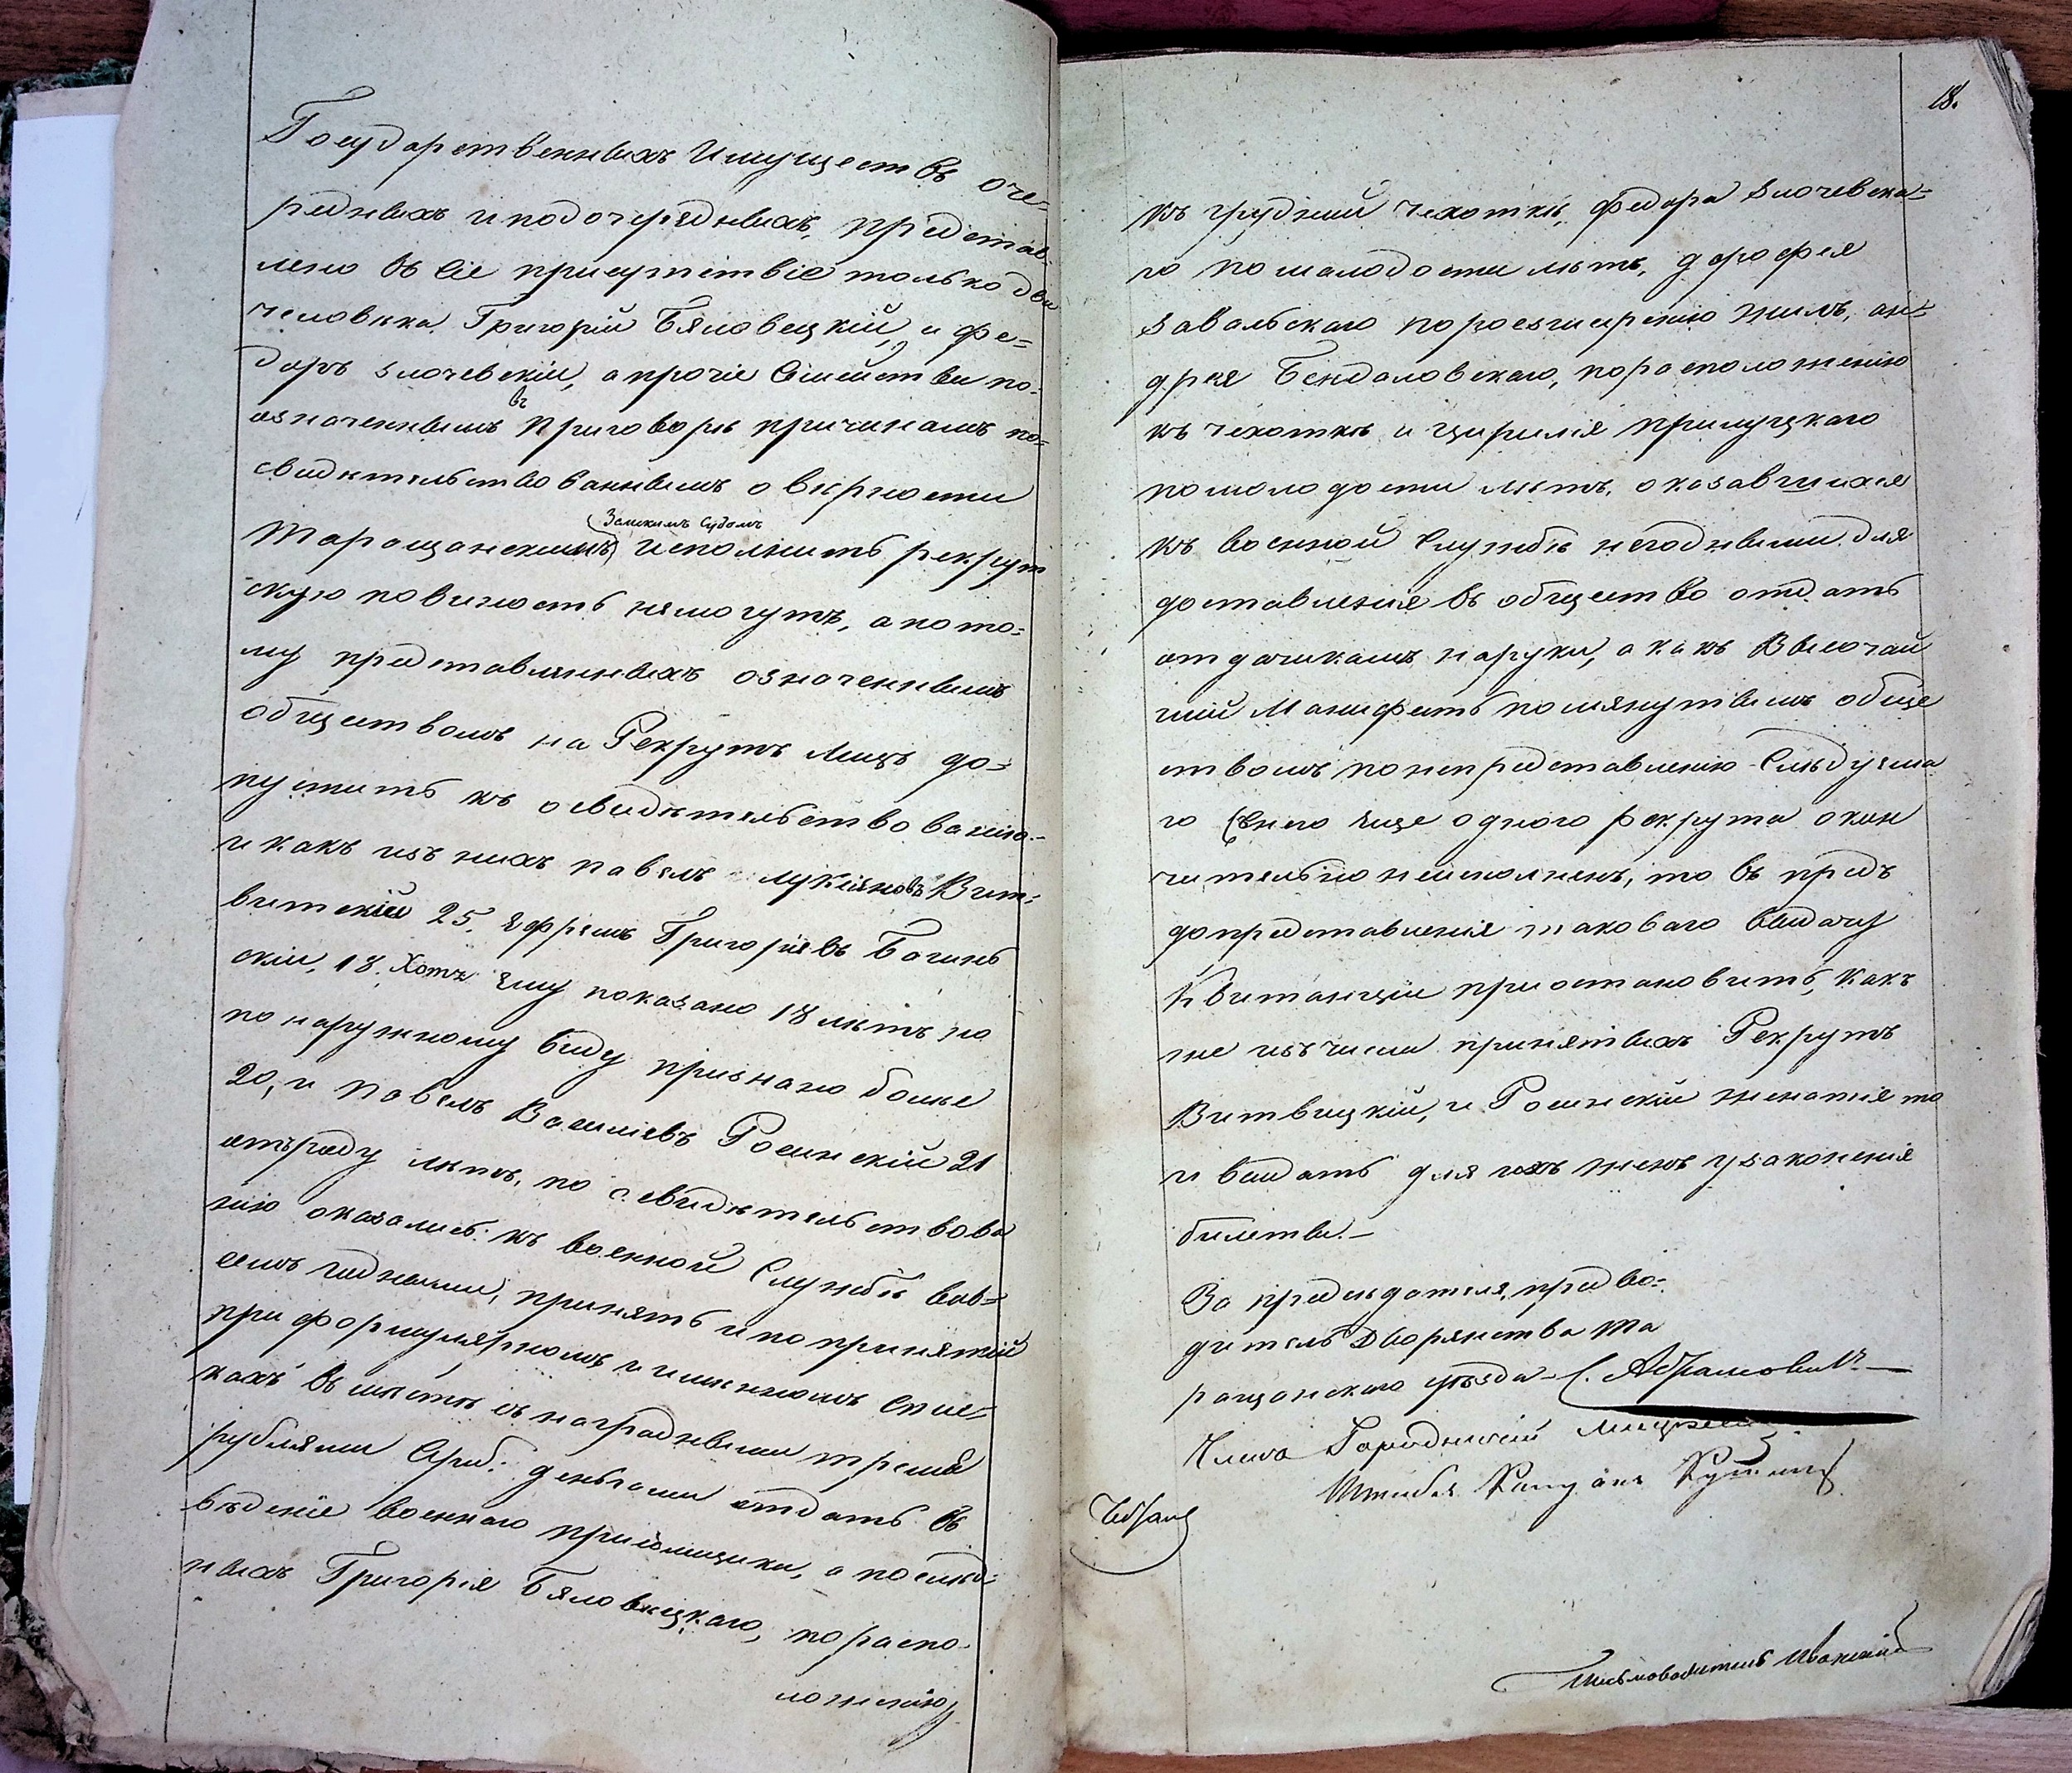 Государственныхъ Имуществъ оче=
редныхъ и подочередныхъ, представ-
лено въ сіе присутствіе только два
человѣка Григорій Бяловецкій, и Фе=
доръ Злочевскій, а прочіе Семейства по-
означеннымъ въ приговорѣ причинамъ по=
свидѣтельствованнымъ о вѣрности
Земскимъ Судомъ
Таращанскимъ исполнить рекрут
скую повиность немогутъ, а пото=
му представленныхъ означеннымъ
обществомъ на Рекрутъ лицъ до=
пустить къ освидѣтельствованію.-
и какъ изъ нихъ павелъ Лукіяновъ Вит-
витскій 25. Ефремъ Григоріевъ Богинь
скій, 18. Хотя ему показано 18 лѣтъ но
по наружному виду признано болѣе
20, и павелъ Василіевъ Росинскій 21
отъ роду лѣтъ, по освидѣтельствова
нію оказались къ военной Службѣ вов=
семъ годными, принять и по принятій
при формулярномъ и именномъ спис=
кахъ въ мѣстѣ съ наградными тремя
рублями Сереб: деньгами отдать въ
вѣденіе военнаго приемщика, а послѣд-
нихъ Григорія Бяловецкаго, по распо-
ложенію
18.
къ грудной чехоткѣ, Федора Злочевска=
го по малодости лѣтъ, дорофея
Завальскаго по розширенію жилъ, ан=
дрея Бендаловскаго, по расположенію
къ чехоткѣ и Цирилія прилуцкаго
по молодости лѣтъ, оказавшихся
къ военной Службѣ негодными для
доставленія въ общество отдать
отдатчикамъ на руки, а какъ Высочай
шій Манифестъ помянутымъ обще
ствомъ по непредставленію Слѣдуема
го съ него еще одного рекрута окон
чительно неисполненъ, то въ предъ
до представленія таковаго выдачу
Квитанціи приостановить, какъ
же изъ числа принятыхъ Рекрутъ
Витвицкій, и Росинскій женатіе то
и выдать для ихъ женъ узаконеніе
билеты.-
За предсѣдателя, предво=
дитель Дворянства Та
ращанскаго уѣзда - С. Абрамовичъ
Члена Городничій
Штабъ
Письмоводитель